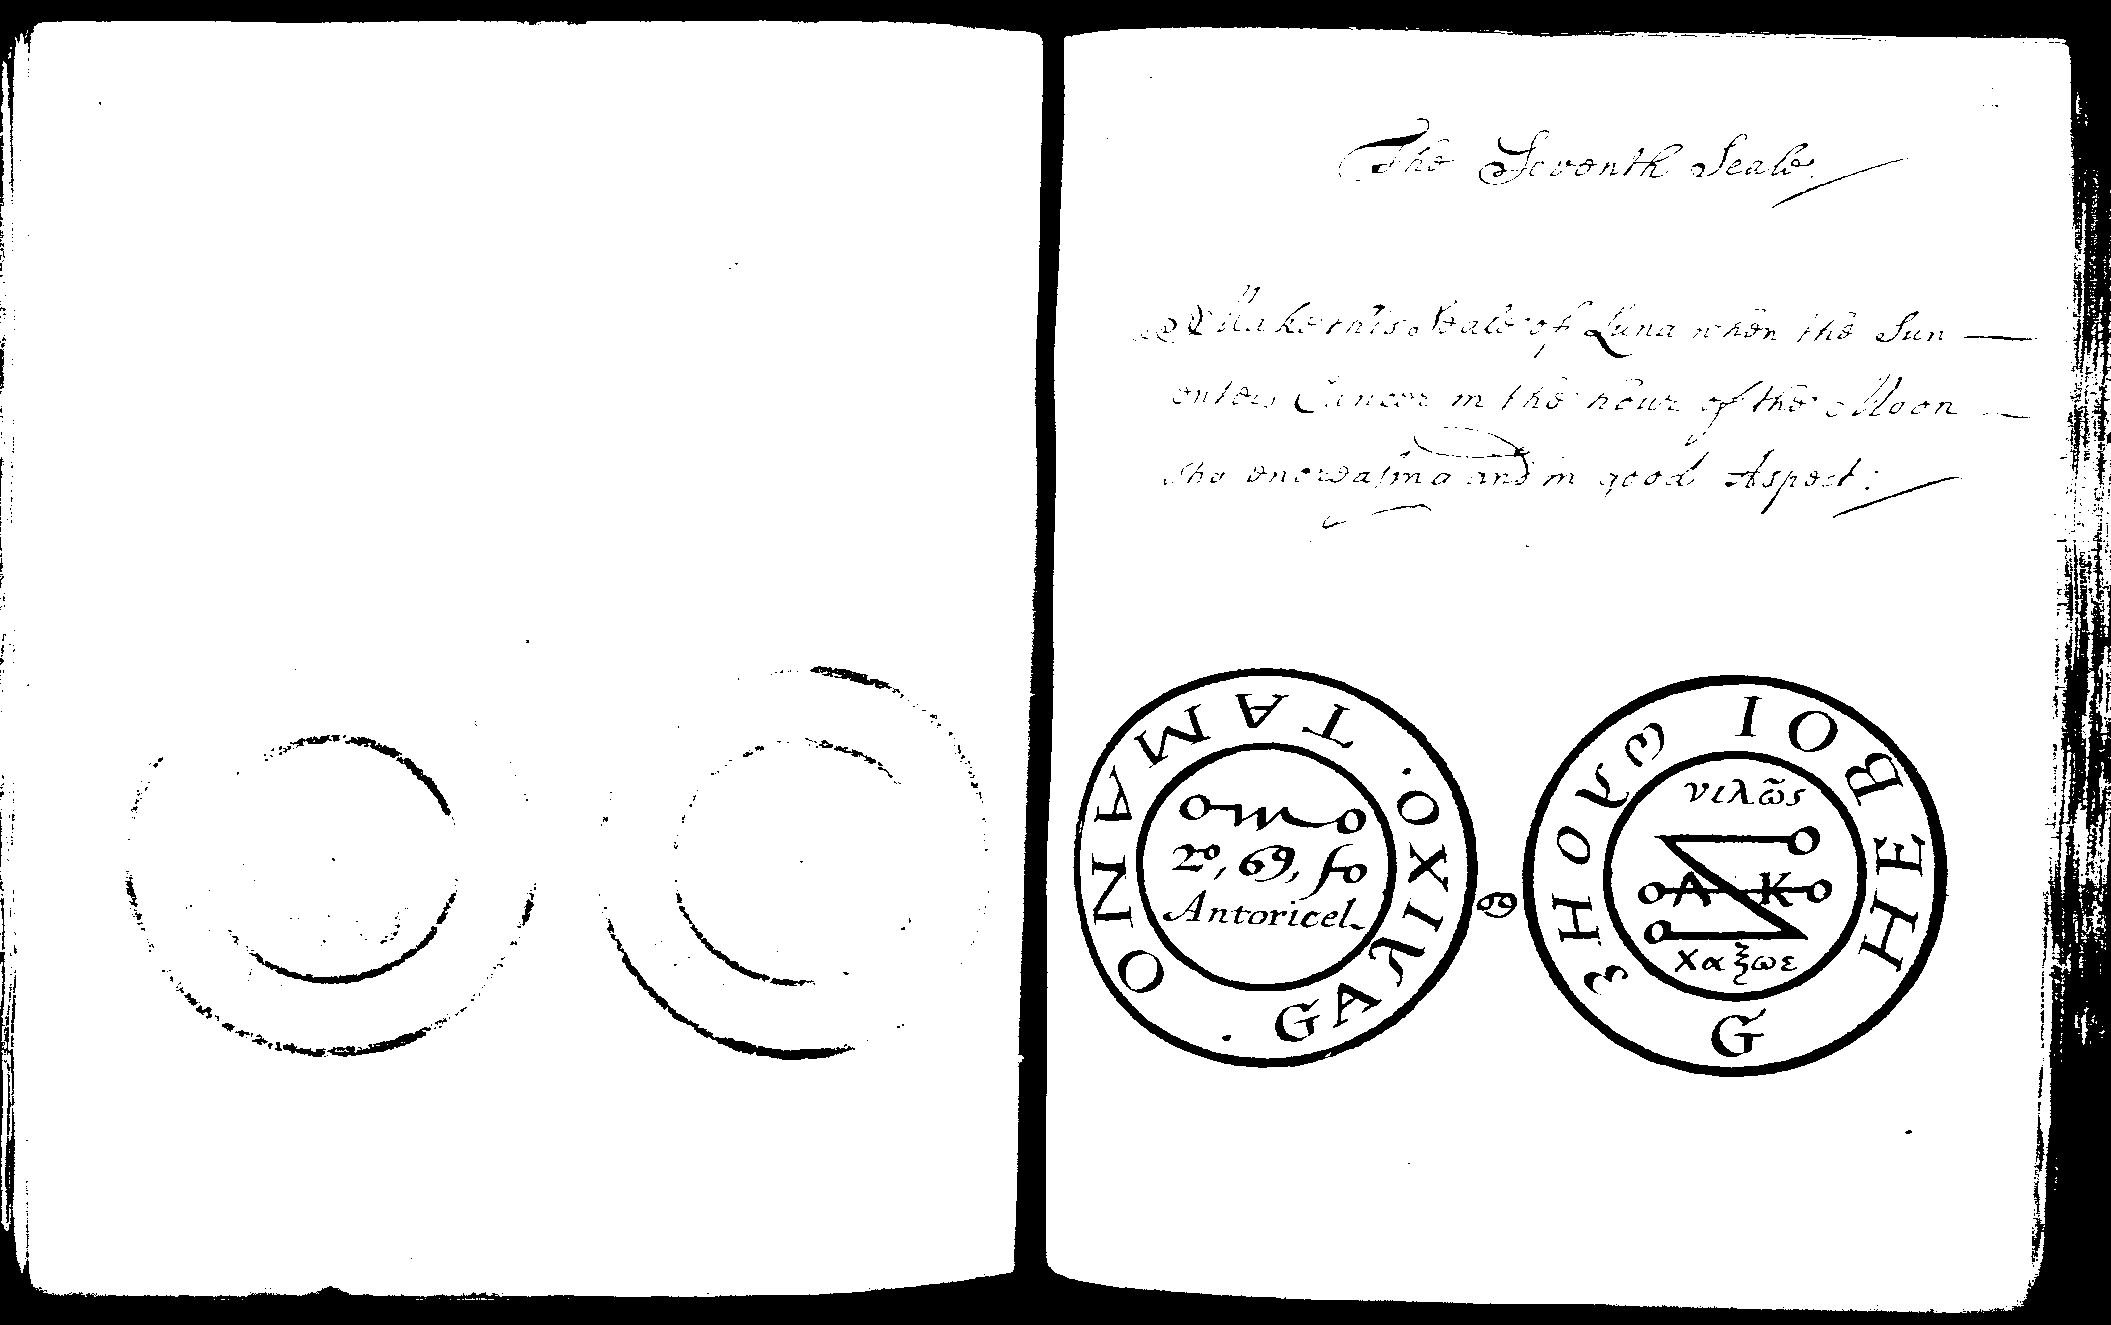 The Seventh Seale.
Make this Seale of Luna when the Sun
enters Cancer in the hour of the Moon
she encreasing and in good Aspect:
TAMANIO . GAλIXO.
2º, 69, fo
Antoricel
IOBEHH G
3HOλω
νιλῶς
A K
Χαξωε
♋